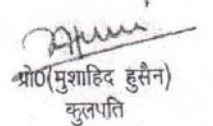 प्रो0(मुशाहिद हुसैन)
कुलपति